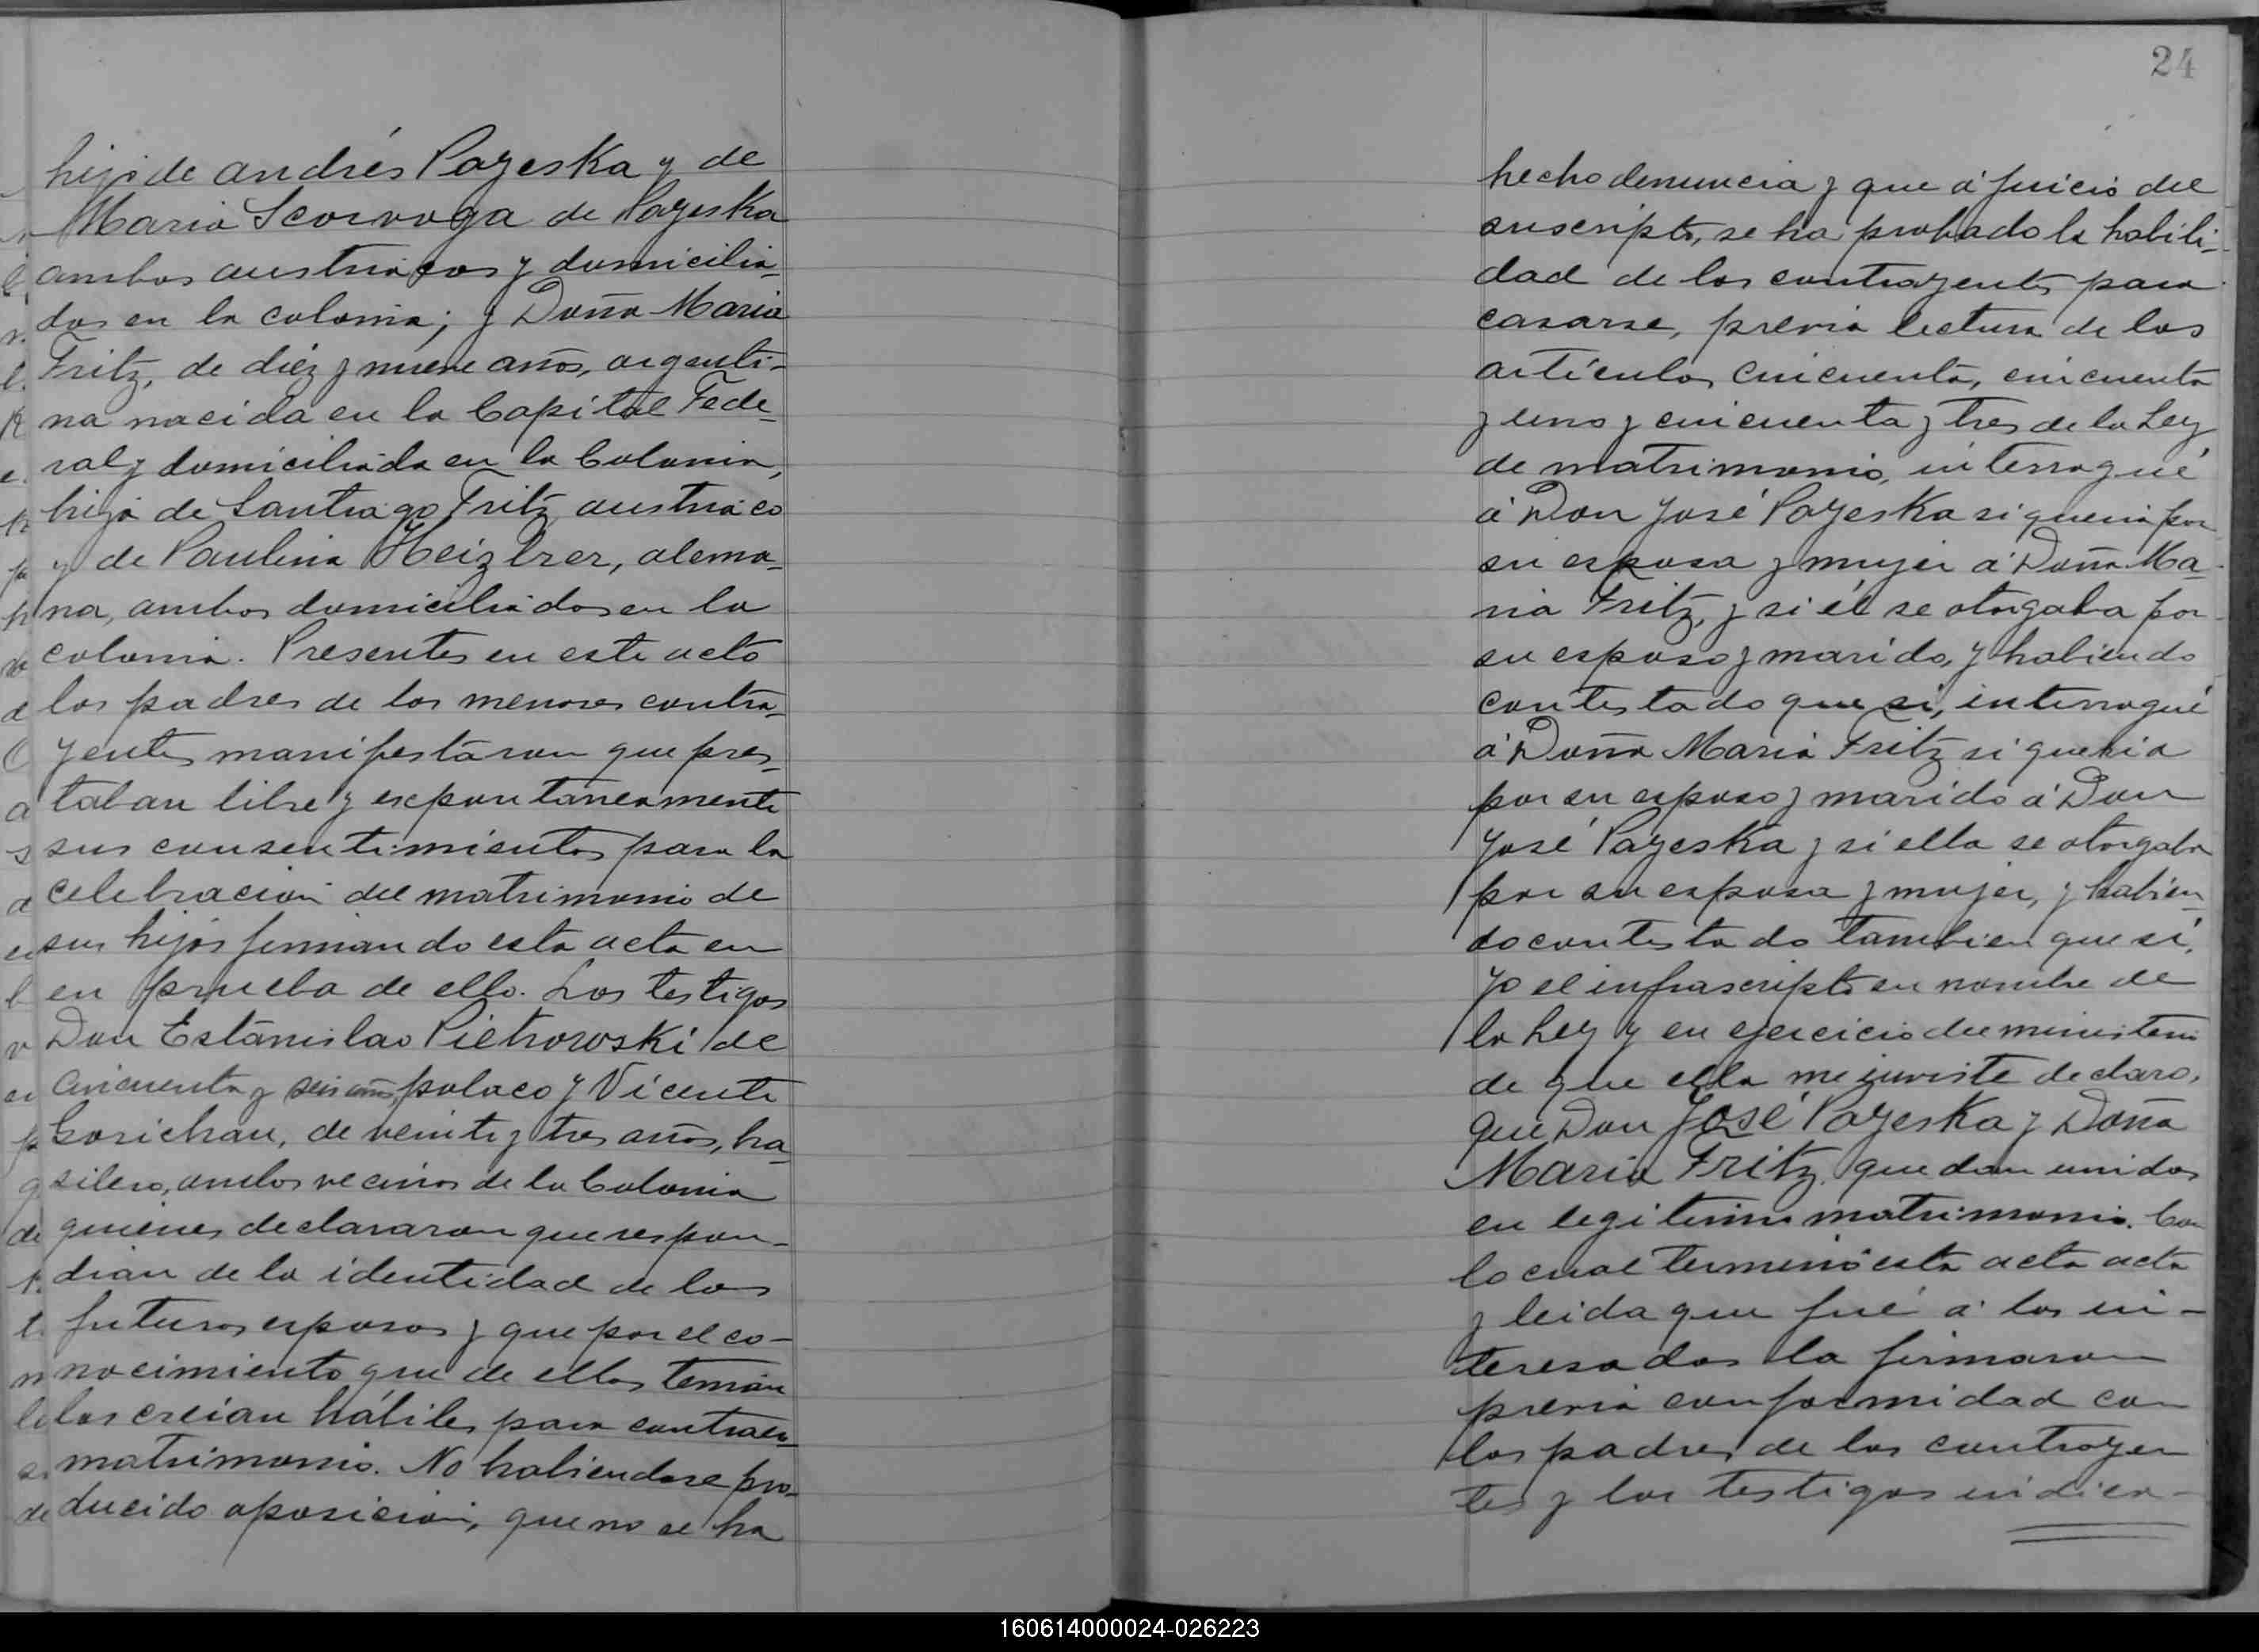 hijo de Andrés Payeska y de
Maria Scorvoga de Payeska
ambos austriacos y domicilia-
dos en la colonia; y Doña Maria
Fritz, de diéz y nueve años, argenti-
na nacida en la Capital Fede-
ral y domiciliada en la Colonia,
hija de Santiago Fritz, austriaco
y de Paulina Heizlrer, alema-
na, ambos domiciliados en la
colonia. Presentes en este acto
los padres de los menores contra-
yentes manifestaron que pres-
taban libre y expontaneamente
sus consentimientos para la
celebracion del matrimonio de
sus hijos firmando esta acta en
en prueba de ello. Los testigos
Don Estanislao Pietrowski de
Cincuenta y seis años, polaco y Vicente
Gorichau, de veinte y tres años, bra-
silero, ambos vecinos de la Colonia
quienes declararon que respon-
dian de la identidad de los
futuros esposos y que por el co-
nocimiento que de ellos tenian
los creian hábiles para contraer
matrimonio. No habiendose pro-
ducido oposicion, que no se ha
24
hecho denuncia y que á juicio del
suscripto, se ha probado la habili-
dad de los contrayentes para
casarse, previa lectura de los
artículos cincuenta, cincuenta
y uno y cincuenta y tres de la Ley
de matrimonio, interrogué
á Don José Payeska si queria por
su esposa y mujer á Doña Ma-
ria Fritz, y si él se otorgaba por
su esposo y marido, y habiendo
contestado que sí, interrogué
á Doña Maria Fritz si queria
por su esposo y marido á Don
José Payeska y si ella se otorgaba
por su esposa y mujer, y habien-
do contestado tambien que sí,
yo el infrascripto en nombre de
la Ley y en ejercicio del ministerio
de que ella me inviste declaro,
que Don José Payeska y Doña
Maria Fritz, quedan unidos
en legitimo matrimonio. Con
lo cual terminó esta acta acta
y leida que fué á los in-
teresados la firmaron
previa conformidad con
los padres de los contrayen
tes y los testigos indica-
160614000024-026223